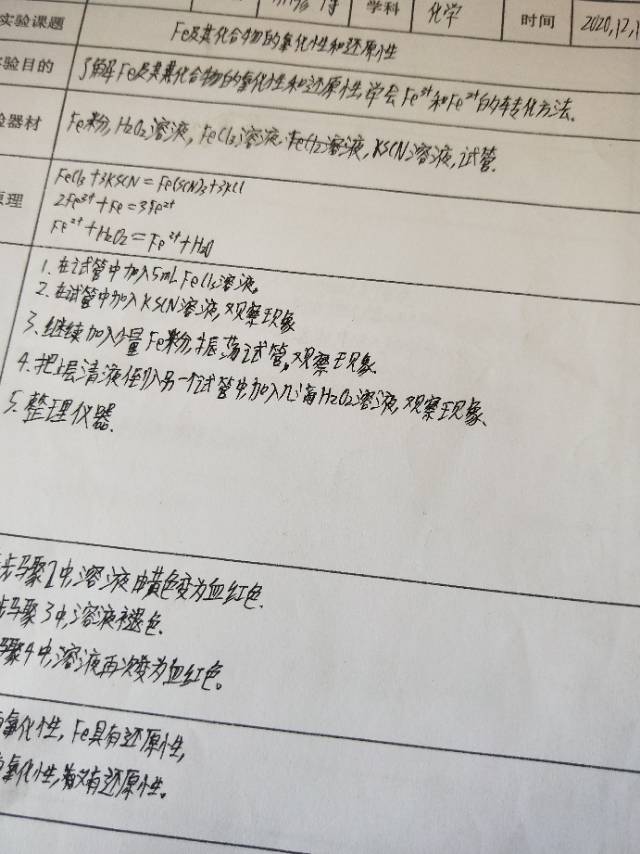 学科 化学 时间 2020,12,1
实验课题 Fe及其化合物的氧化性和还原性
验目的 了解Fe及其化合物的氧化性和还原性,学会Fe³⁺和Fe²⁺的转化方法.
验器材 Fe粉,H₂O₂溶液,FeCl₃溶液,FeCl₂溶液,KSCN溶液,试管.
原理 FeCl₃+3KSCN=Fe(SCN)₃+3KCl
2Fe³⁺+Fe=3Fe²⁺
Fe²⁺+H₂O₂=Fe³⁺+H₂O
1.在试管中加入5mL FeCl₃溶液。
2.在试管中加入KSCN溶液,观察现象
3.继续加入少量Fe粉,振荡试管,观察现象.
4.把上层清液倒入另一个试管中,加入几滴H₂O₂溶液,观察现象、
5.整理仪器.
步骤2中,溶液由黄色变为血红色.
步骤3中,溶液褪色.
骤4中,溶液再次变为血红色。
氧化性,Fe具有还原性,
氧化性,又有还原性。